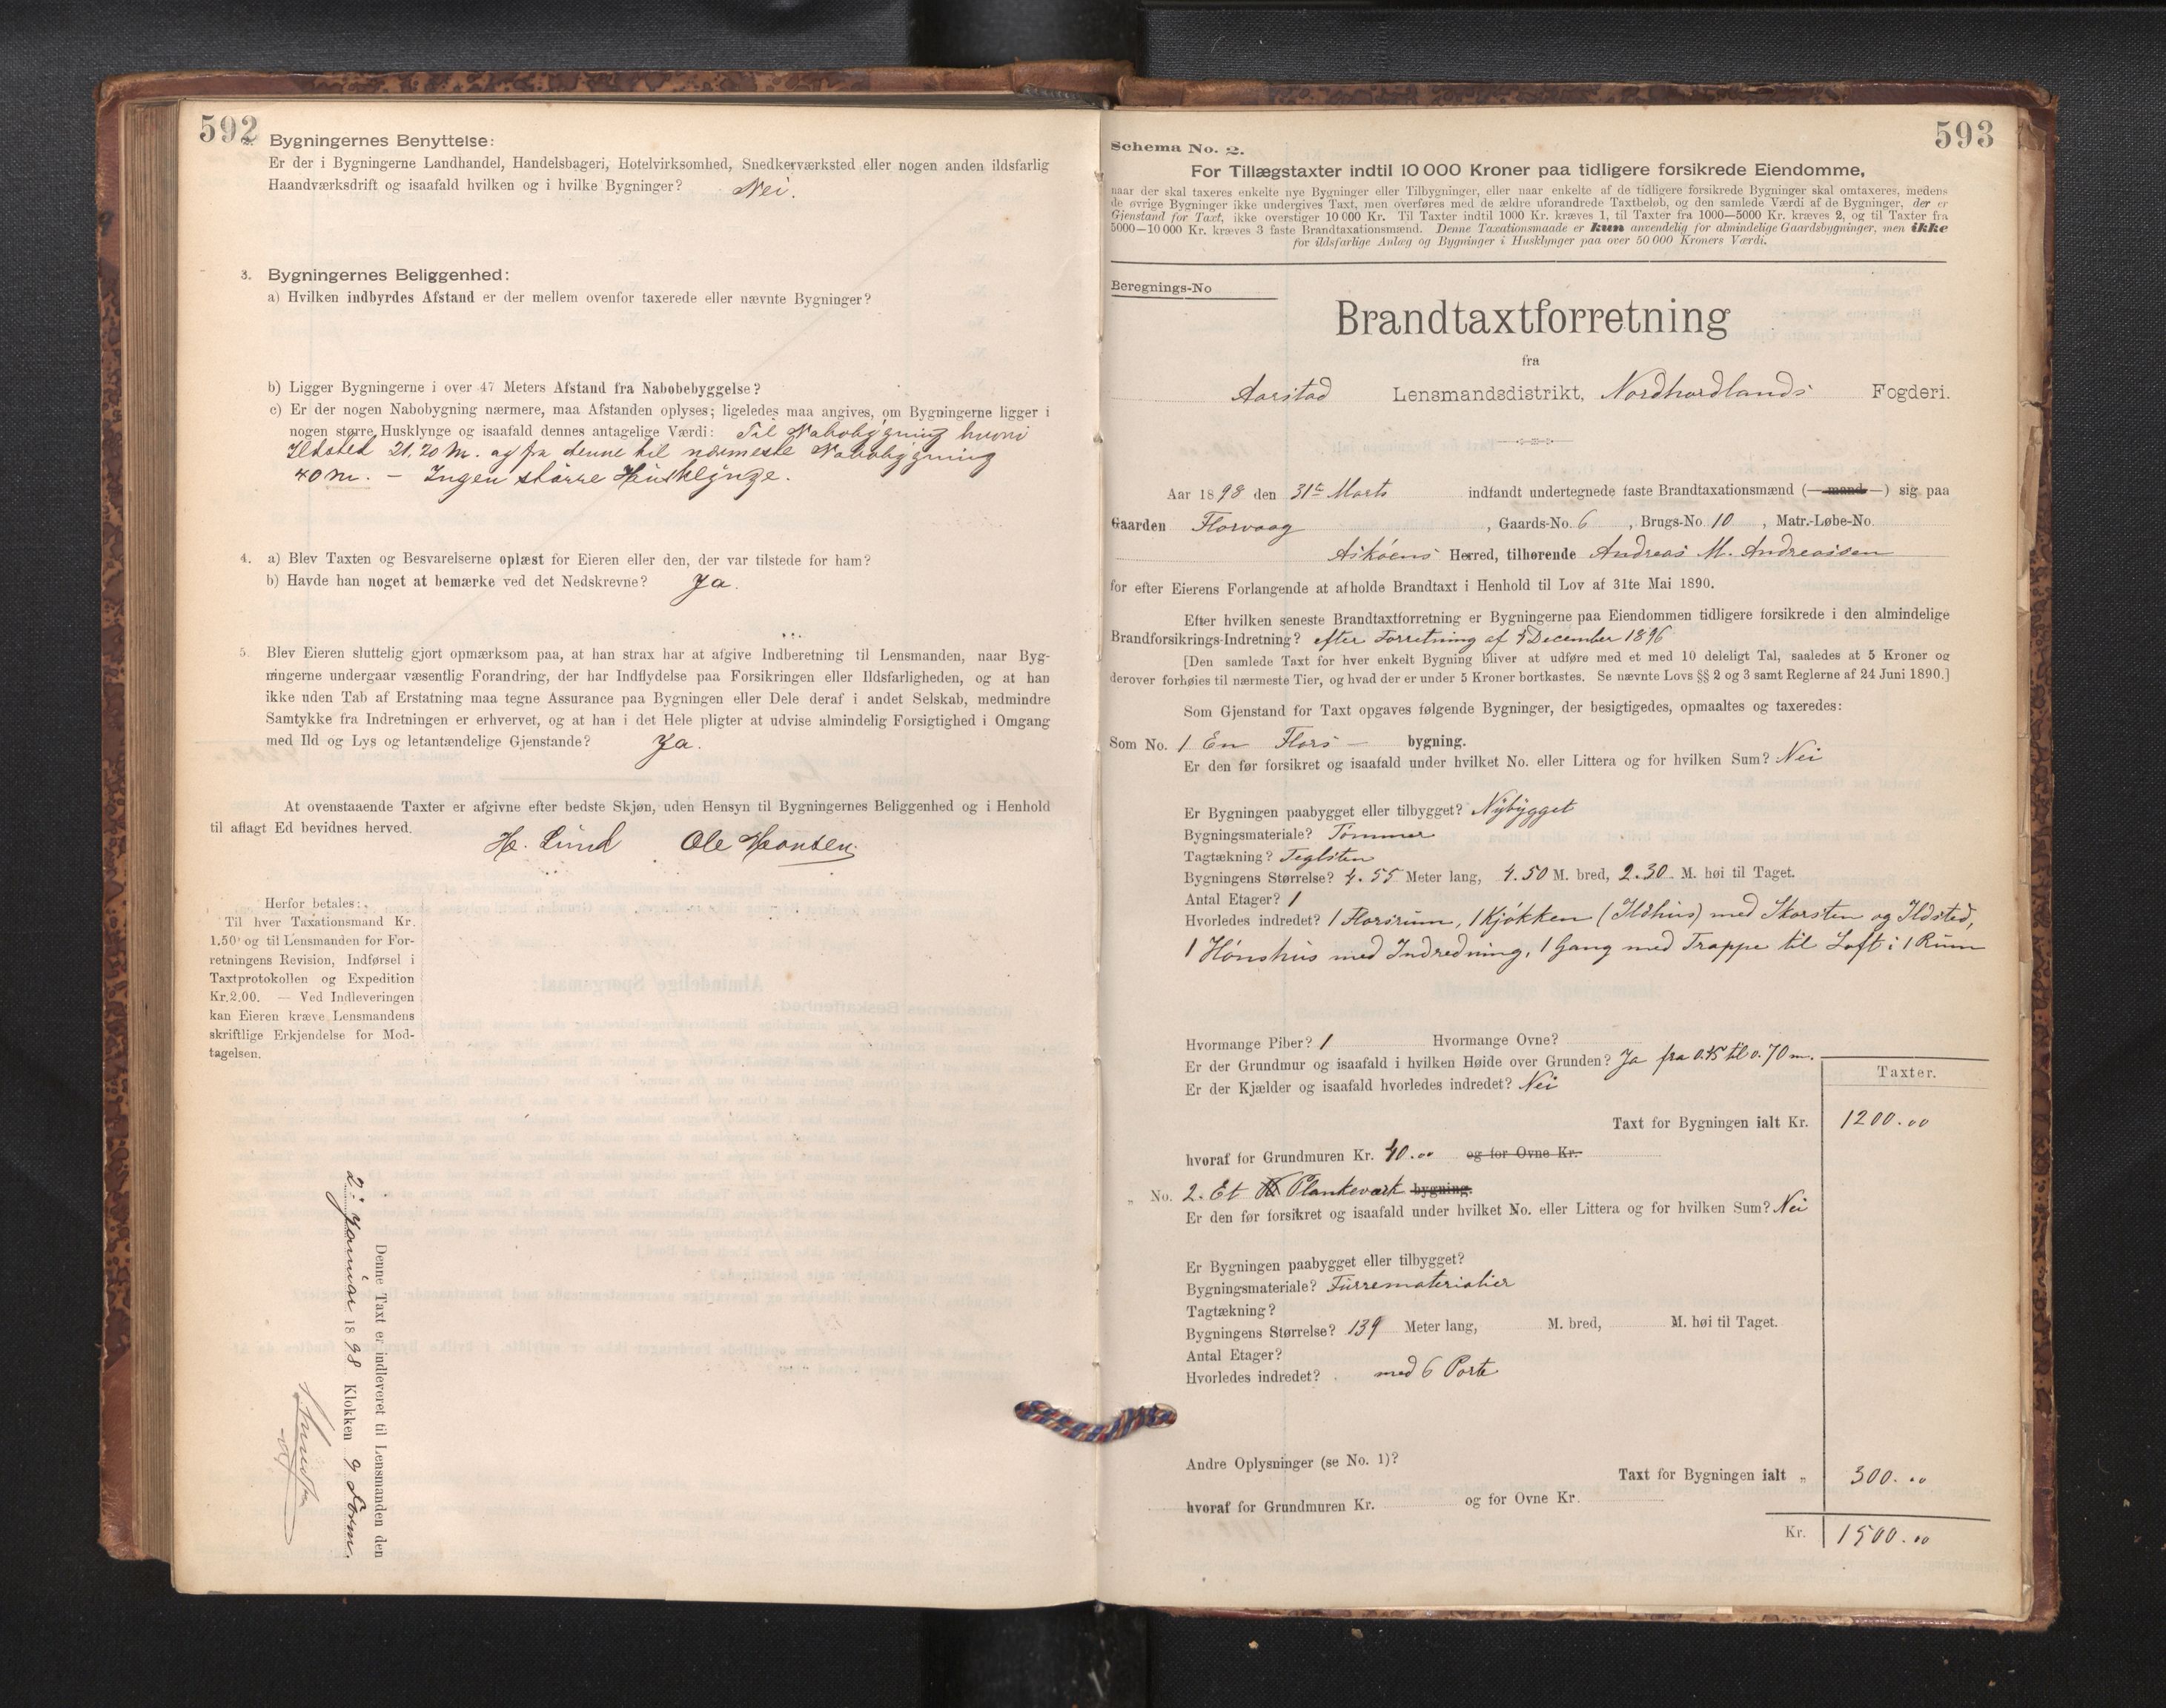 592
2. Bygningernes Benyttelse:
Er der i Bygningerne Landhandel, Handelsbageri, Hotelvirksomhed, Snedkerværksted eller nogen anden ildsfarlig
Haandværksdrift og isaafald hvilken og i hvilke Bygninger? Nei.
3. Bygningernes Beliggenhed:
a) Hvilken indbyrdes Afstand er der mellem ovenfor taxerede eller nævnte Bygninger?
b) Ligger Bygningerne i over 47 Meters Afstand fra Nabobebyggelse?
c) Er der nogen Nabobygning nærmere, maa Afstanden oplyses; ligeledes maa angives, om Bygningerne ligger i
nogen større Husklynge og isaafald dennes antagelige Værdi: Til Nabobygning hvori
Ildsted 21,20 M. og fra denne til nærmeste Nabobygning
40 m. – Ingen større Husklynge.
4. a) Blev Taxten og Besvarelserne oplæst for Eieren eller den, der var tilstede for ham?
b) Havde han noget at bemærke ved det Nedskrevne? Ja.
5. Blev Eieren sluttelig gjort opmærksom paa, at han strax har at afgive Indberetning til Lensmanden, naar Byg-
ningerne undergaar væsentlig Forandring, der har Indflydelse paa Forsikringen eller Ildsfarligheden, og at han
ikke uden Tab af Erstatning maa tegne Assurance paa Bygningen eller Dele deraf i andet Selskab, medmindre
Samtykke fra Indretningen er erhvervet, og at han i det Hele pligter at udvise almindelig Forsigtighed i Omgang
med Ild og Lys og letantændelige Gjenstande? Ja.
At ovenstaaende Taxter er afgivne efter bedste Skjøn, uden Hensyn til Bygningernes Beliggenhed og i Henhold
til aflagt Ed bevidnes herved.
H. Lund Ole Hansen.
Herfor betales:
Til hver Taxationsmand Kr.
1.50 og til Lensmanden for For-
retningens Revision, Indførsel i
Taxtprotokollen og Expedition
Kr. 2.00. — Ved Indleveringen
kan Eieren kræve Lensmandens
skriftlige Erkjendelse for Mod-
tagelsen.
Denne Taxt er indleveret til Lensmanden den
2. Januar 1898 Klokken 9 Form.
593
Schema No. 2.
For Tillægstaxter indtil 10 000 Kroner paa tidligere forsikrede Eiendomme,
naar der skal taxeres enkelte nye Bygninger eller Tilbygninger, eller naar enkelte af de tidligere forsikrede Bygninger skal omtaxeres, medens
de øvrige Bygninger ikke undergives Taxt, men overføres med de ældre uforandrede Taxtbeløb, og den samlede Værdi af de Bygninger, der er
Gjenstand for Taxt, ikke overstiger 10 000 Kr. Til Taxter indtil 1000 Kr. kræves 1, til Taxter fra 1000—5000 Kr. kræves 2, og til Taxter fra
5000—10 000 Kr. kræves 3 faste Brandtaxationsmænd. Denne Taxationsmaade er kun anvendelig for almindelige Gaardsbygninger, men ikke
for ildsfarlige Anlæg og Bygninger i Husklynger paa over 50 000 Kroners Værdi.
Beregnings-No
Brandtaxtforretning
fra
Aarstad Lensmandsdistrikt, Nordhordlands Fogderi.
Aar 1898 den 31te Marts indfandt undertegnede faste Brandtaxationsmænd (— mand —) sig paa
Gaarden Florvaag, Gaards-No. 6, Brugs-No. 10, Matr.-Løbe-No.
Askøens Herred, tilhørende Andreas M. Andreassen
for efter Eierens Forlangende at afholde Brandtaxt i Henhold til Lov af 31te Mai 1890.
Efter hvilken seneste Brandtaxtforretning er Bygningerne paa Eiendommen tidligere forsikrede i den almindelige
Brandforsikrings-Indretning? efter Forretning af 5 December 1896
[Den samlede Taxt for hver enkelt Bygning bliver at udføre med et med 10 deleligt Tal, saaledes at 5 Kroner og
derover forhøies til nærmeste Tier, og hvad der er under 5 Kroner bortkastes. Se nævnte Lovs §§ 2 og 3 samt Reglerne af 24 Juni 1890.]
Som Gjenstand for Taxt opgaves følgende Bygninger, der besigtigedes, opmaaltes og taxeredes:
Som No. 1 En Flors – bygning.
Er den før forsikret og isaafald under hvilket No. eller Littera og for hvilken Sum? Nei
Er Bygningen paabygget eller tilbygget? Nybygget
Bygningsmateriale? Tømmer
Tagtækning? Teglsten
Bygningens Størrelse? 4.55 Meter lang, 4.50 M. bred, 2.30 M. høi til Taget.
Antal Etager? 1
Hvorledes indredet? 1 Florsrum, 1 Kjøkken (Ildhus) med Skorsten og Ildsted,
1 Hønshus med Indredning, 1 Gang med Trappe til Loft i 1 Rum
Hvormange Piber? 1 Hvormange Ovne?
Er der Grundmur og isaafald i hvilken Høide over Grunden? Ja fra 0.45 til 0.70 m.
Er der Kjælder og isaafald hvorledes indredet? Nei
Taxter.
Taxt for Bygningen ialt Kr. 1200.00
hvoraf for Grundmuren Kr. 40.00 og for Ovne Kr.
„ No. 2. Et Plankeværk bygning.
Er den før forsikret og isaafald under hvilket No. eller Littera og for hvilken Sum? Nei
Er Bygningen paabygget eller tilbygget?
Bygningsmateriale? Furrematerialier
Tagtækning?
Bygningens Størrelse? 139 Meter lang, M. bred, M. høi til Taget.
Antal Etager?
Hvorledes indredet? med 6 Porte
Andre Oplysninger (se No. 1)?
Taxt for Bygningen ialt „ 300.00
hvoraf for Grundmuren Kr. og for Ovne Kr.
Kr. 1500.00